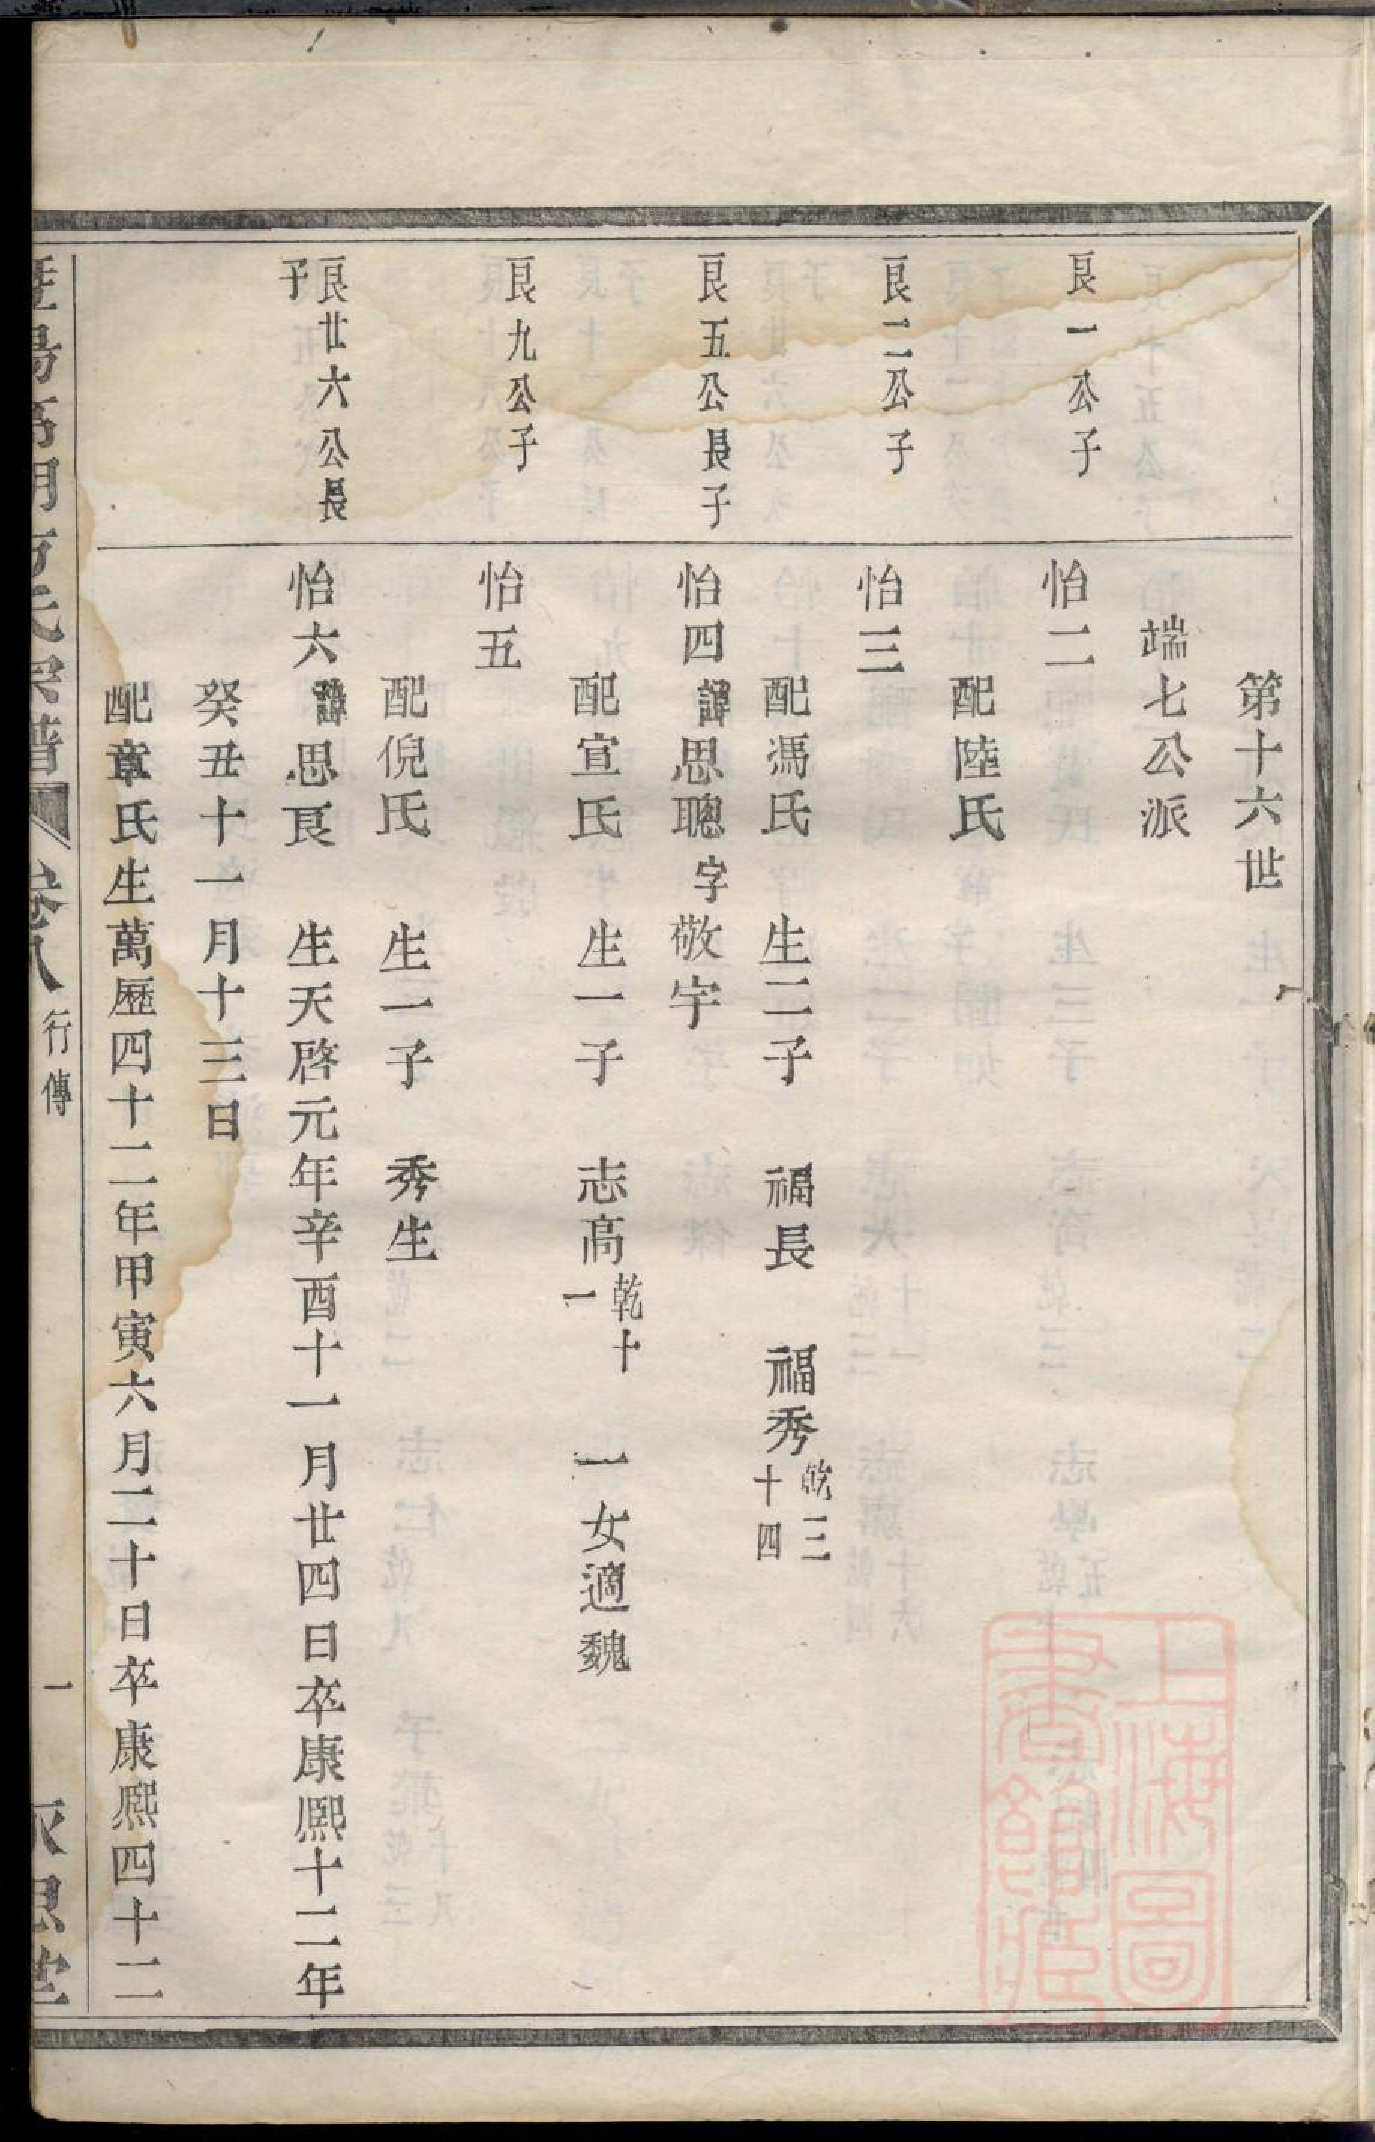 第十六世
端七公派
良一公子
怡二
配陸氏
良二公子
怡三
配馮氏 生二子 福長 福秀乾三十四
良五公長子
怡四諱思聰字敬宇
配宣氏 生一子 志高乾十一 一女適魏
良九公子
怡五
配倪氏 生一子 秀生
良廿六公長子
怡六諱思良 生天啓元年辛酉十一月廿四日卒康熙十二年
癸丑十一月十三日
配章氏生萬歷四十二年甲寅六月二十日卒康熙四十二
暨陽高湖方氏宗譜 卷八 行傳 一 永思堂
上海圖書館藏